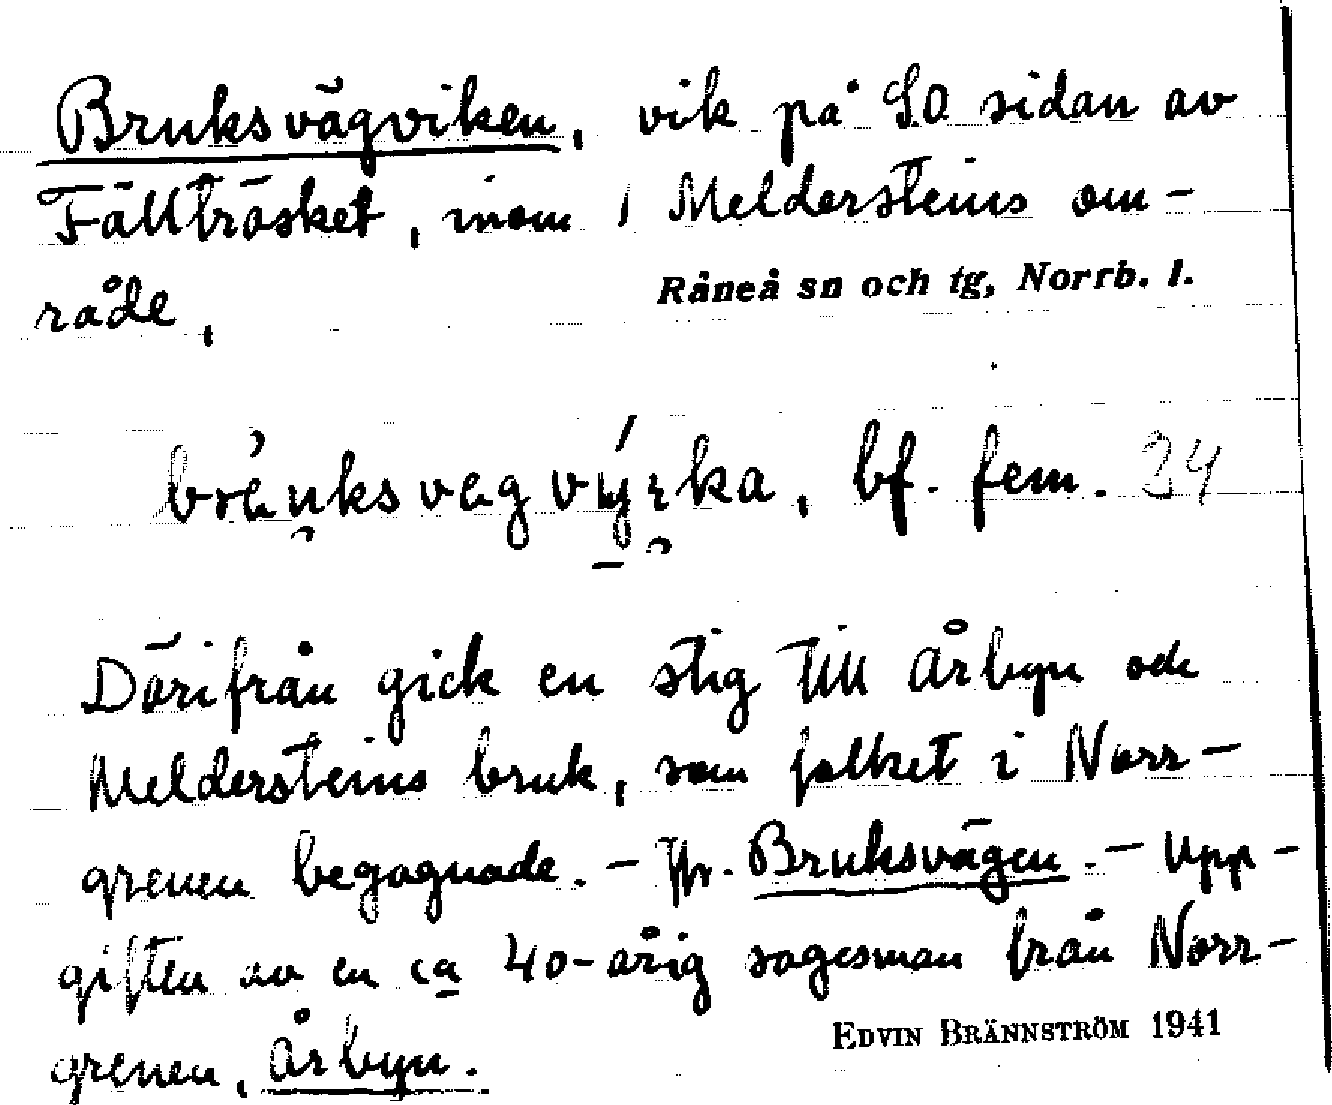 Bruksvägviken, vik på SO sidan av
Fällträsket, inom Meldersteins om-
råde,
Råneå sn och tg, Norrb. l.
bf. fem. 24
Därifrån gick en stig till Årbyn och
Meldersteins bruk, som folket i Norr-
grenen begagnade. - Jfr. Bruksvägen. - Upp-
giften av en ca 40-årig sagesman från Norr-
grenen, Årbyn.
EDVIN BRÄNNSTRÖM 1941